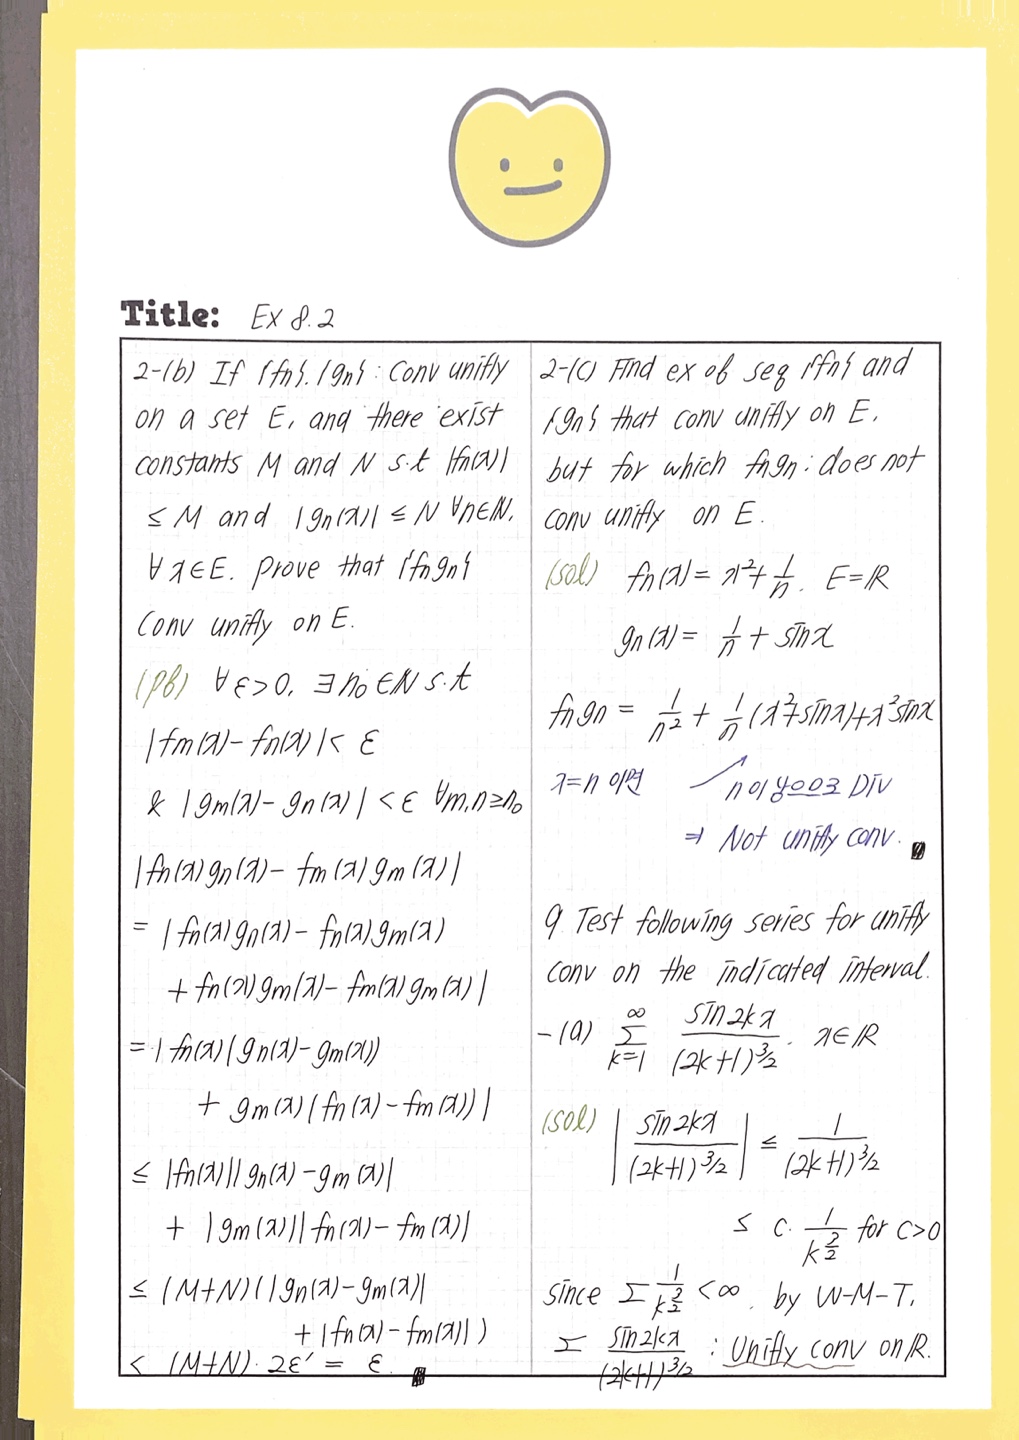 Title: Ex 8.2
2-(b) If {fn}, {gn} : conv unifly
on a set E, and there exist
constants M and N s.t |fn(x)|
≤ M and |gn(x)| ≤ N ∀n∈N,
∀x∈E. prove that {fngn}
conv unifly on E.
(pf) ∀ε>0, ∃n₀∈N s.t
|fm(x)-fn(x)|< ε
& |gm(x)-gn(x)| <ε ∀m,n≥n₀
|fn(x)gn(x)- fm(x)gm(x)|
= |fn(x)gn(x)- fn(x)gm(x)
+ fn(x)gm(x)- fm(x)gm(x)|
= |fn(x)(gn(x)-gm(x))
+ gm(x)(fn(x)-fm(x))|
≤ |fn(x)||gn(x)-gm(x)|
+ |gm(x)||fn(x)- fm(x)|
≤ (M+N)(|gn(x)-gm(x)|
+|fn(x)- fm(x)|)
< (M+N)·2ε' = ε.
2-(c) Find ex of seq {fn} and
{gn} that conv unifly on E,
but for which fngn : does not
conv unifly on E.
(sol) fn(x)= x²+1/n. E=R
gn(x)= 1/n + sinx
fngn = 1/n² + 1/n(x²+sinx)+x²sinx
x=n 이면 n이 남으므로 Div
⇒ Not unifly conv.
9 Test following series for unifly
conv on the indicated interval.
-(a) ∑_{k=1}^{∞} sin2kx/(2k+1)^{3/2}. x∈R
(sol) |sin2kx/(2k+1)^{3/2}| ≤ 1/(2k+1)^{3/2}
≤ c· 1/k^{3/2} for c>0
since ∑ 1/k^{3/2} <∞, by W-M-T,
∑ sin2kx/(2k+1)^{3/2} : Unifly conv on R.